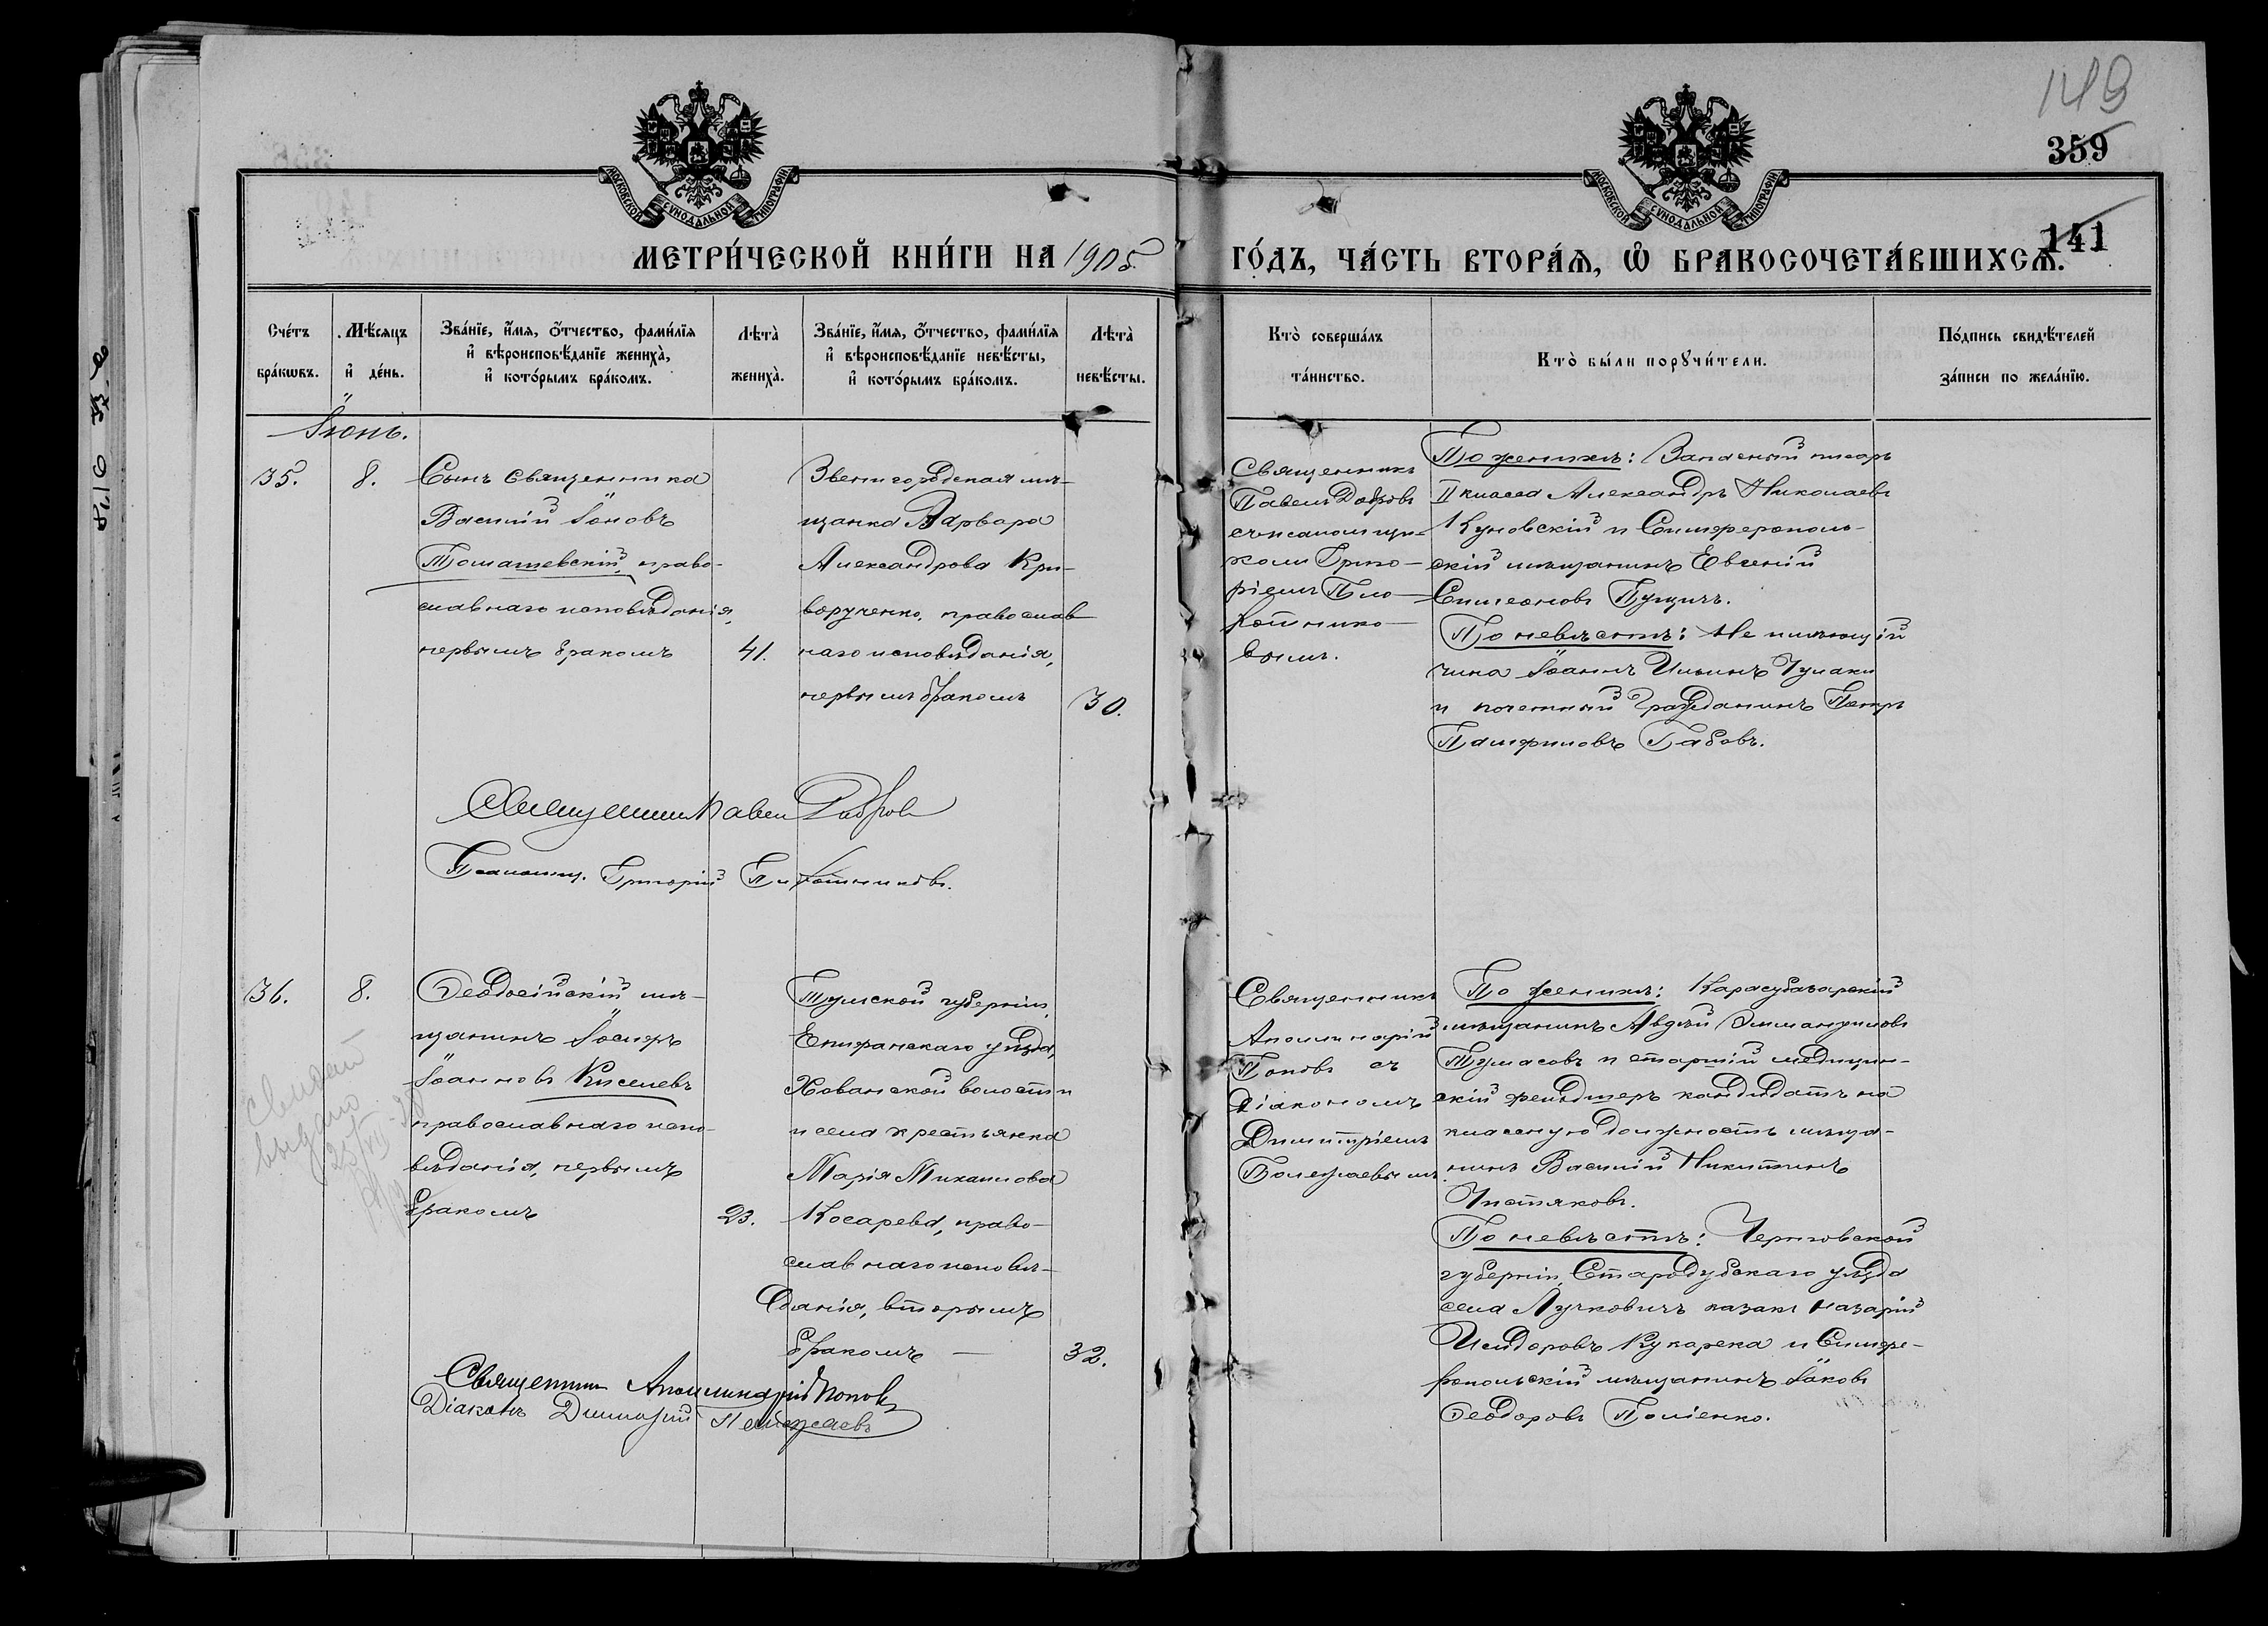 149
359
141
МОСКОВСКОЙ СѴНОДАЛЬНОЙ ТИПОГРАФІИ
МОСКОВСКОЙ СѴНОДАЛЬНОЙ ТИПОГРАФІИ
МЕТРИ́ЧЕСКОЙ КНИ́ГИ НА 1905
ГО́ДЪ, ЧА́СТЬ ВТОРА́Ѧ, Ѡ҆ БРАКОСОЧЕТА́ВШИХСѦ.
Сче́тъ
бра́кѡвъ.
Мѣ́сяцъ
и҆ де́нь.
Зва́нїе, и҆́мя, ѻ҆́тчество, фами́лїя
и҆ вѣроисповѣ́данїе жениха̀,
и҆ кото́рымъ бра́комъ.
Лѣта̀
жениха̀.
Зва́нїе, и҆́мя, ѻ҆́тчество, фами́лїя
и҆ вѣроисповѣ́данїе невѣ́сты,
и҆ кото́рымъ бра́комъ.
Лѣта̀
невѣ́сты.
Кто̀ соверша́лъ
та́инство.
Кто̀ бы́ли порꙋчи́тели.
По́дпись свидѣ́телей
за́писи по жела́нїю.
Іюнь.
35.
8.
Сынъ священника
Василій Іоновъ
Томашевскій, право-
славнаго исповѣданія,
первымъ бракомъ
41.
Звенигородская мѣ-
щанка Варвара
Александрова Кри-
ворученко, православ
наго исповѣданія,
первымъ бракомъ
30.
Священникъ
Павелъ Добровъ
съ псаломщи-
комъ Григо-
ріемъ Пло-
тнико-
вымъ.
По женихѣ: Запасный писарь
II класса Александръ Николаевъ
Куновскій и Симферополь-
скій мѣщанинъ Евгеній
Симеоновъ Пущичъ.
По невѣстѣ: Не имѣющій
чина Іоаннъ Ильинъ Чумакъ
и почетный гражданинъ Петръ
Памфиловъ Бабовъ.
Священникъ Павелъ Добровъ
Псаломщ. Григорій Плотниковъ.
36.
8.
Ѳеодосійскій мѣ-
щанинъ Іосифъ
Іоанновъ Киселевъ
православнаго испо-
вѣданія, первымъ
бракомъ
23.
Тульской губерніи,
Епифанскаго уѣзда,
Хованской волости
и села крестьянка
Марія Михаилова
Косарева, право-
славнаго исповѣ-
данія, вторымъ
бракомъ —
32.
Священникъ
Аполлинарій
Поповъ съ
діакономъ
Димитріемъ
Полежаевымъ.
По женихѣ: Карасубазарскій
мѣщанинъ Авдѣй Эммануиловъ
Тумасовъ и старшій медицин-
скій фельдшеръ кандидатъ на
классную должность мѣща-
нинъ Василій Никитинъ
Чистяковъ.
По невѣстѣ: Черниговской
губерніи, Стародубскаго уѣзда
села Лучковичъ казакъ Назарій
Исидоровъ Кукарека и Симфе-
ропольскій мѣщанинъ Іаковъ
Ѳеодоровъ Поліенко.
Священникъ Аполлинарій Поповъ
Діаконъ Димитрій Полежаевъ
выдано